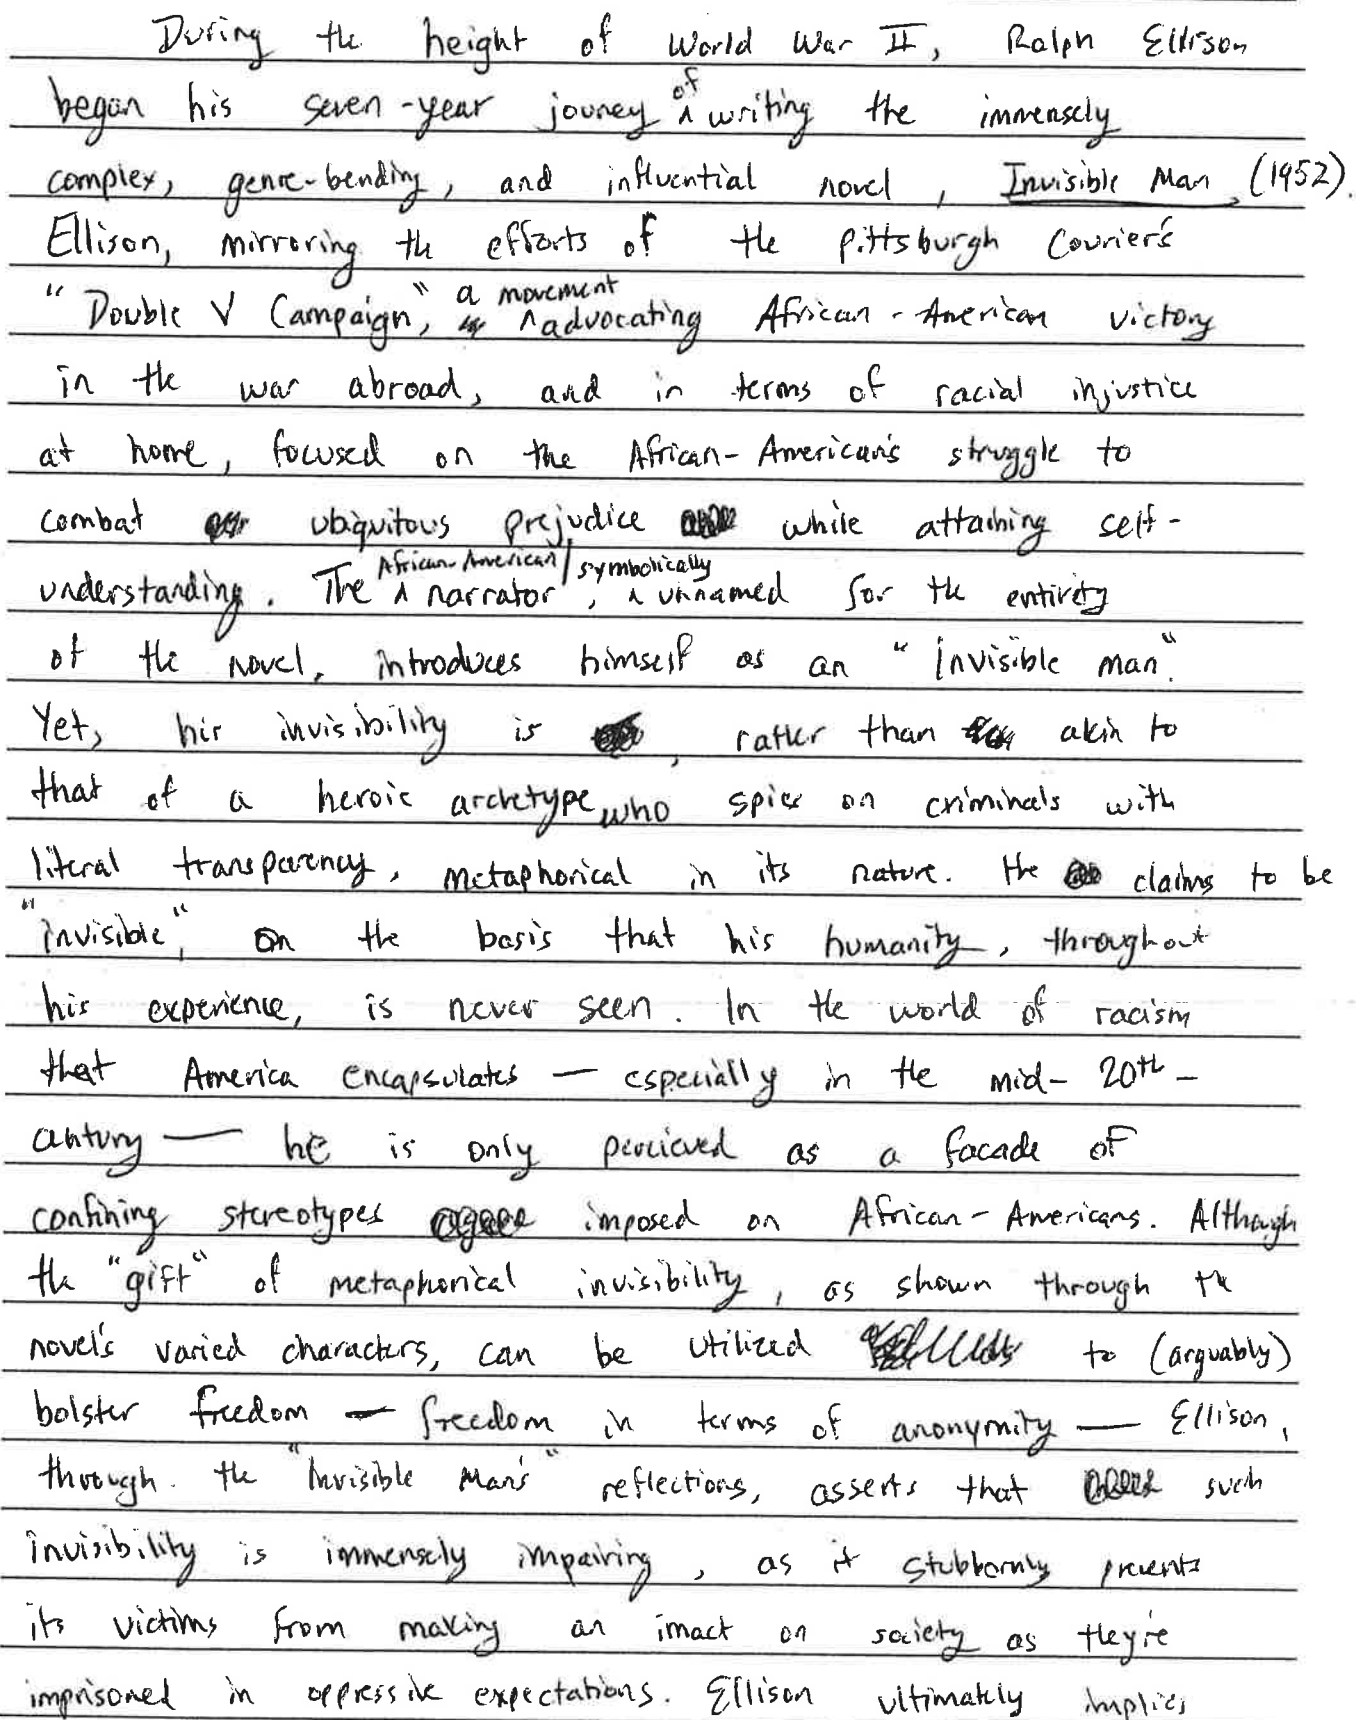 During the height of World War II, Ralph Ellison
began his seven-year jouney of writing the immensely
complex, genre-bending, and influential novel, Invisible Man, (1952).
Ellison, mirroring the efforts of the Pittsburgh Courier's
"Double V Campaign," a movement advocating African-American victory
in the war abroad, and in terms of racial injustice
at home, focused on the African-American's struggle to
combat ubiquitous prejudice while attaining self-
understanding. The African-American narrator, symbolically unnamed for the entirety
of the novel, introduces himself as an "invisible man".
Yet, his invisibility is, rather than akin to
that of a heroic archetype who spies on criminals with
literal transparency, metaphorical in its nature. He claims to be
"invisible", on the basis that his humanity, throughout
his experience, is never seen. In the world of racism
that America encapsulates — especially in the mid-20th-
century — he is only percieved as a facade of
confining stereotypes imposed on African-Americans. Although
the "gift" of metaphorical invisibility, as shown through the
novel's varied characters, can be utilized to (arguably)
bolster freedom — freedom in terms of anonymity — Ellison,
through the "Invisible Man's" reflections, asserts that such
invisibility is immensely impairing, as it stubbornly prevents
its victims from making an imact on society as they're
imprisoned in oppressive expectations. Ellison ultimately implies